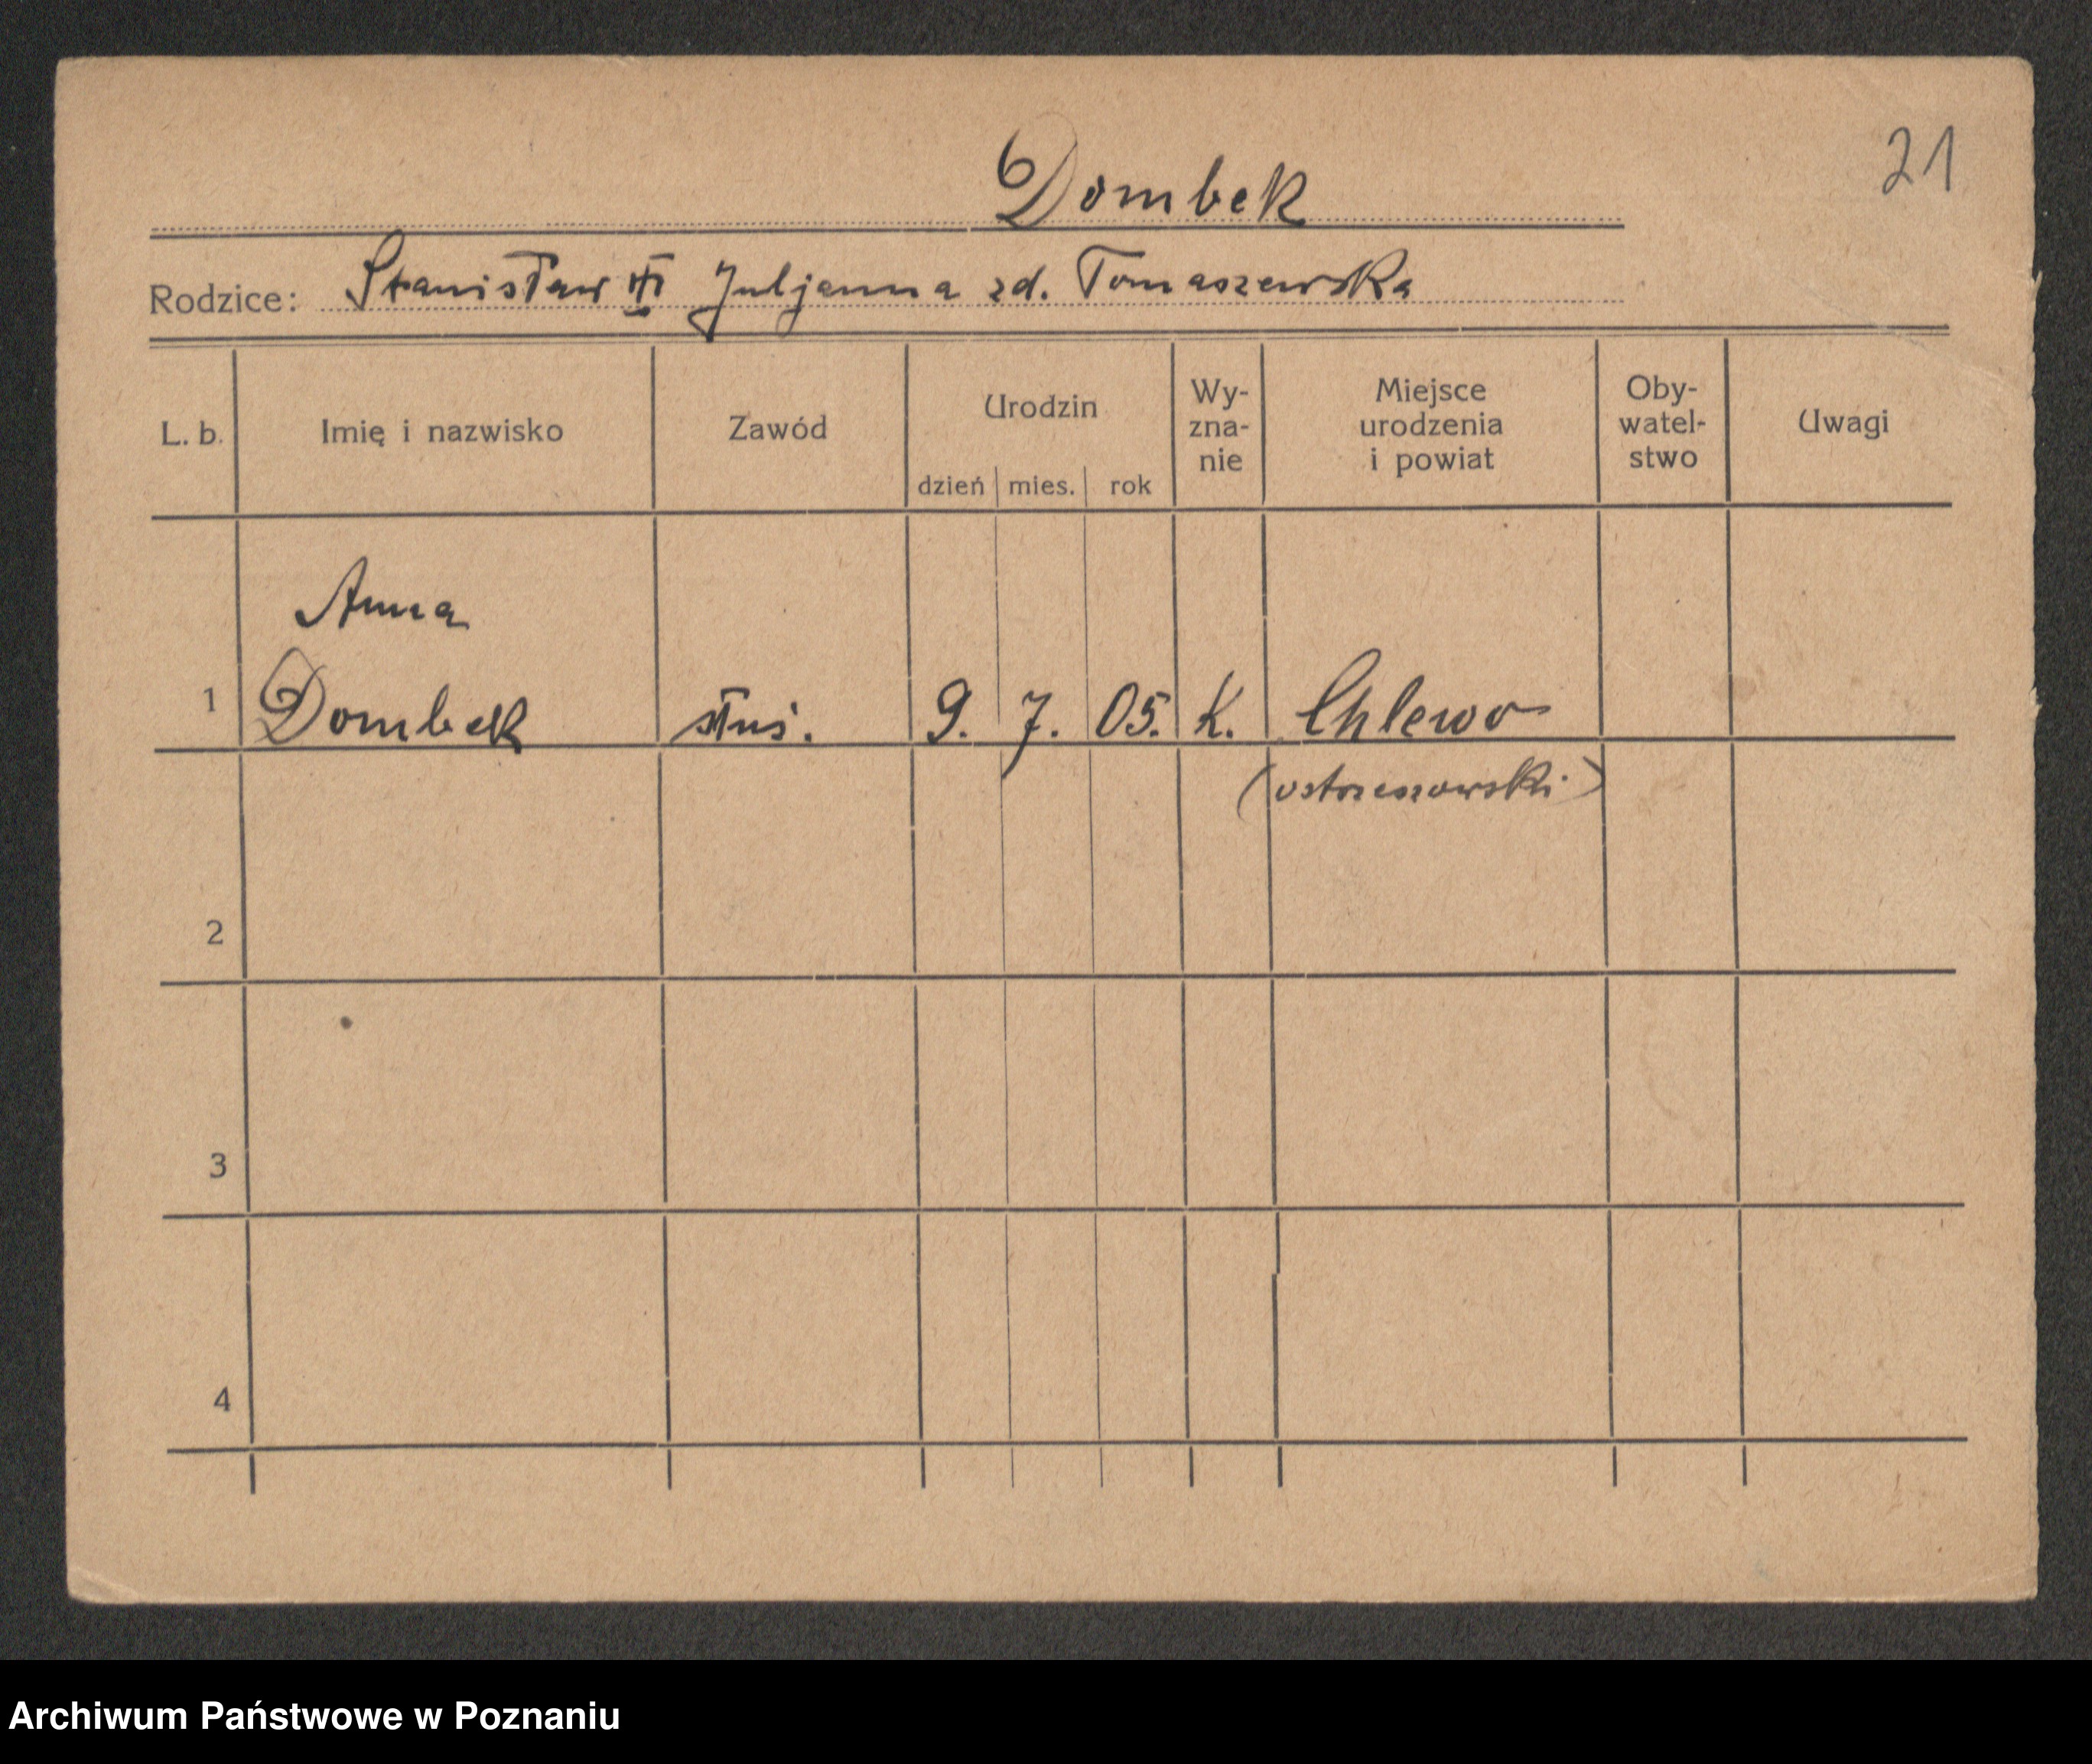 Dombek
21
Rodzice: Stanisław Juljanna zd. Tomaszewska
L. b. Imię i nazwisko Zawód Urodzin dzień mies. rok Wy-zna-nie Miejsce urodzenia i powiat Oby-watel-stwo Uwagi
Anna
1 Dombek służ. 9. 7. 05. K. Chlewo
(ostrzeszowski)
2
3
4
Archiwum Państwowe w Poznaniu